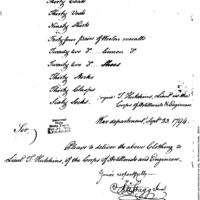 Thirty Coats
Thirty Vests
Ninety Shirts
Forty four pairs of Woolen overalls
Twenty two do linnen do
Twenty two do Shoes
Thirty Stocks
Thirty Clasps
Sixty Socks
signed T. Hutchins, Lieut in the
Corps of Artillerists & Engineers
War department, Sept 23. 1794.
Sir,
Please to deliver the above Clothing to
Lieut T. Hutchins, of the Corps of Artillerists and Engineers.
Yours respectfully